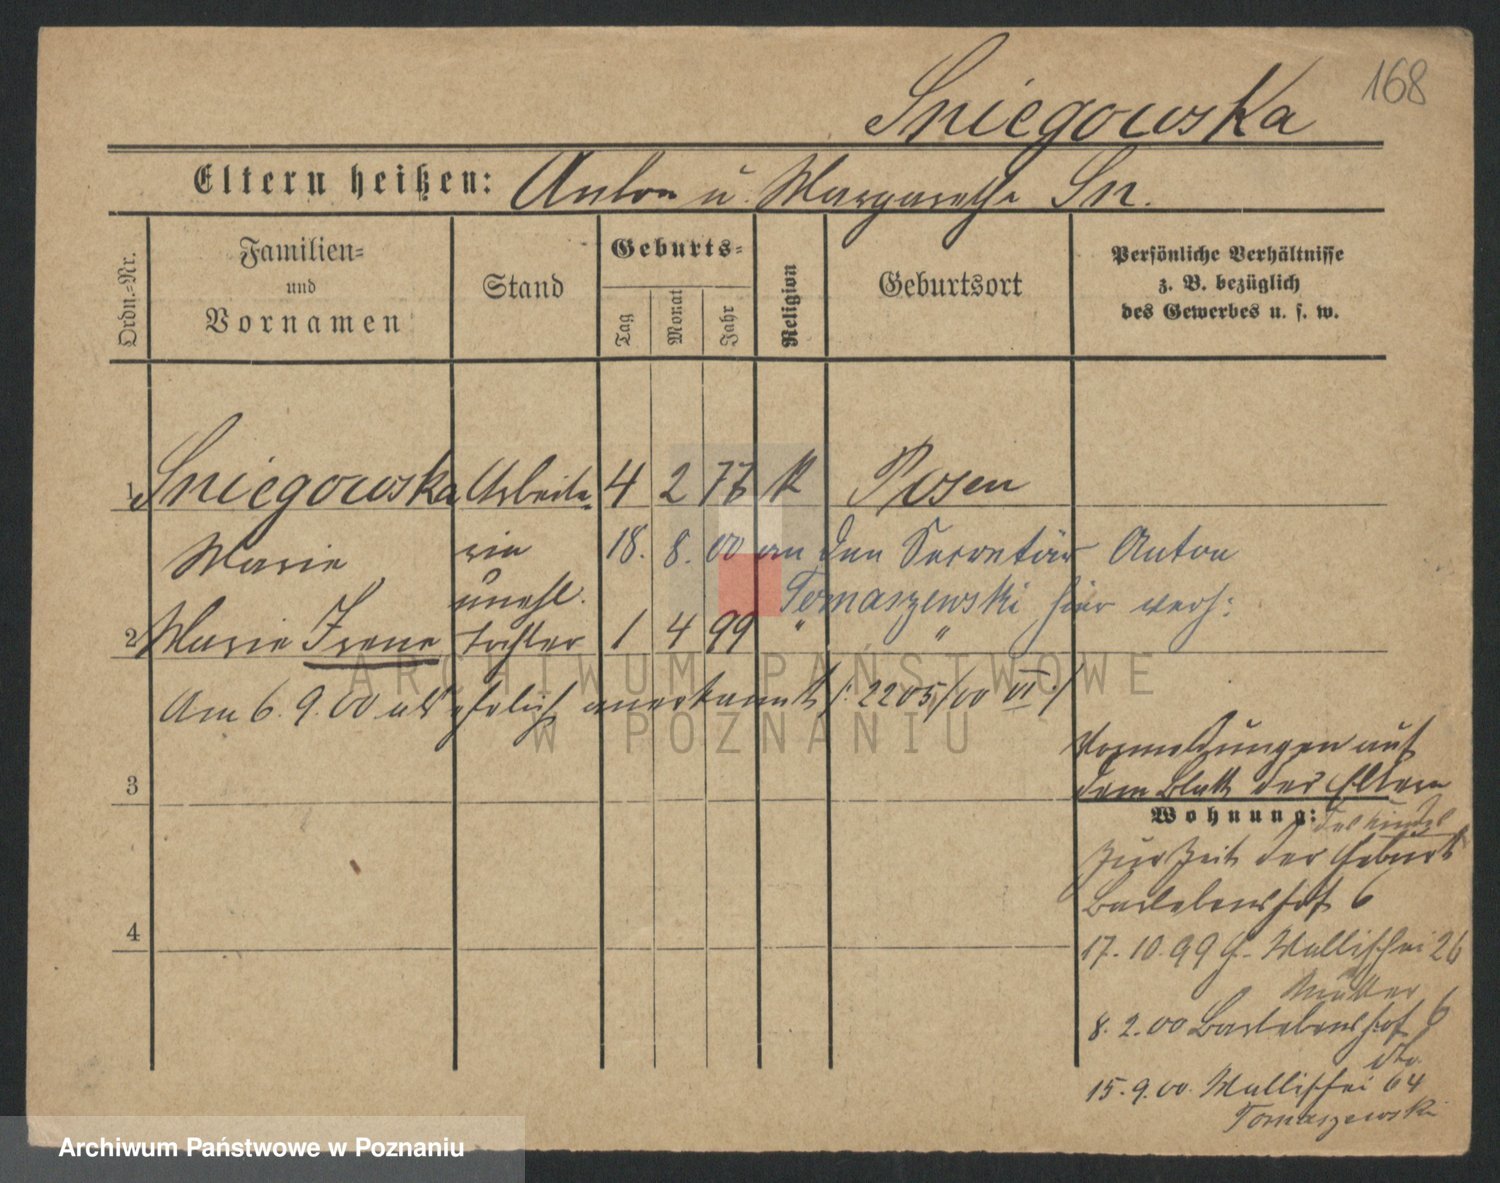 168
Sniegowska
Eltern heißen: Anton u. Margarethe Sn.
Ordn.-Nr.
Familien-
und
Vornamen
Stand
Geburts-
Tag
Monat
Jahr
Religion
Geburtsort
Persönliche Verhältnisse
z. B. bezüglich
des Gewerbes u. s. w.
1 Sniegowska Arbeite- 4 2 77 k Posen
Marie rin 18. 8. 00 an den Secretär Anton
unehl. Tomaszewski hier verh:
2 Marie Irene Tochter 1 4 99 " "
Am 6. 9. 00 als ehelich anerkannt /: 2205/00 VI :/
3
Vormeldungen auf
dem Blatt der Eltern
Wohnung:
zur Zeit der Geburt
Barlebenshof 6
4
17. 10. 99 G. Wallischei 26
Mutter
8. 2. 00 Barlebenshof 6
dto.
15. 9. 00. Wallischei 64
Tomaszewski
ARCHIWUM PAŃSTWOWE
W POZNANIU
Archiwum Państwowe w Poznaniu